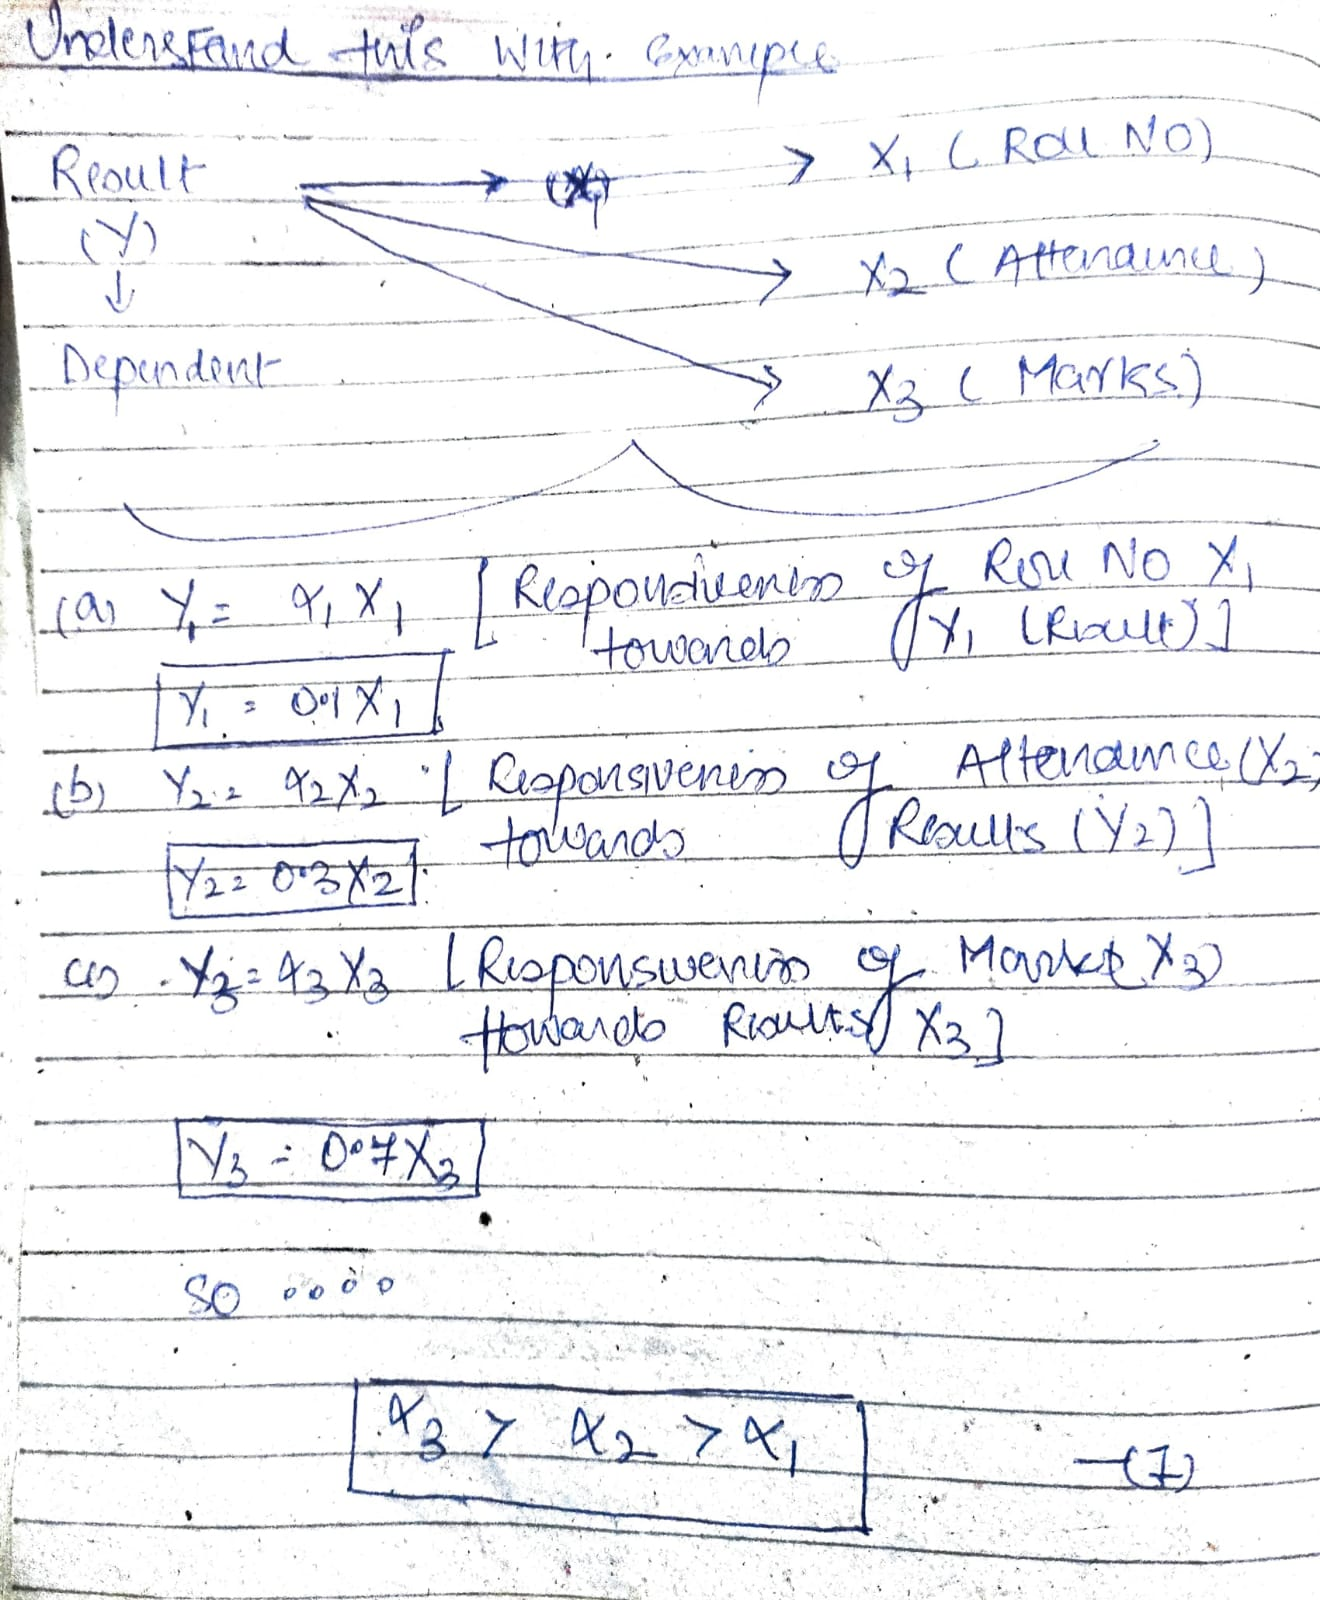 Understand this with. Example
Result → → X₁ ( Roll NO)
(Y) X₂ ( Attendance)
↓
Dependent X₃ ( Marks)
(a) Y₁ = α₁ X₁ [ Responsiveness of Roll NO X₁
towards Y₁ (Result)]
Y₁ = 0.1 X₁
(b) Y₂ = α₂ X₂ [ Responsiveness of Attendance (X₂)
towards Results (Y₂)]
Y₂ = 0.3 X₂
(c) Y₃ = α₃ X₃ [ Responsiveness of Marks X₃)
towards Results X₃]
Y₃ = 0.7 X₃
SO ....
α₃ > α₂ > α₁ —(7)